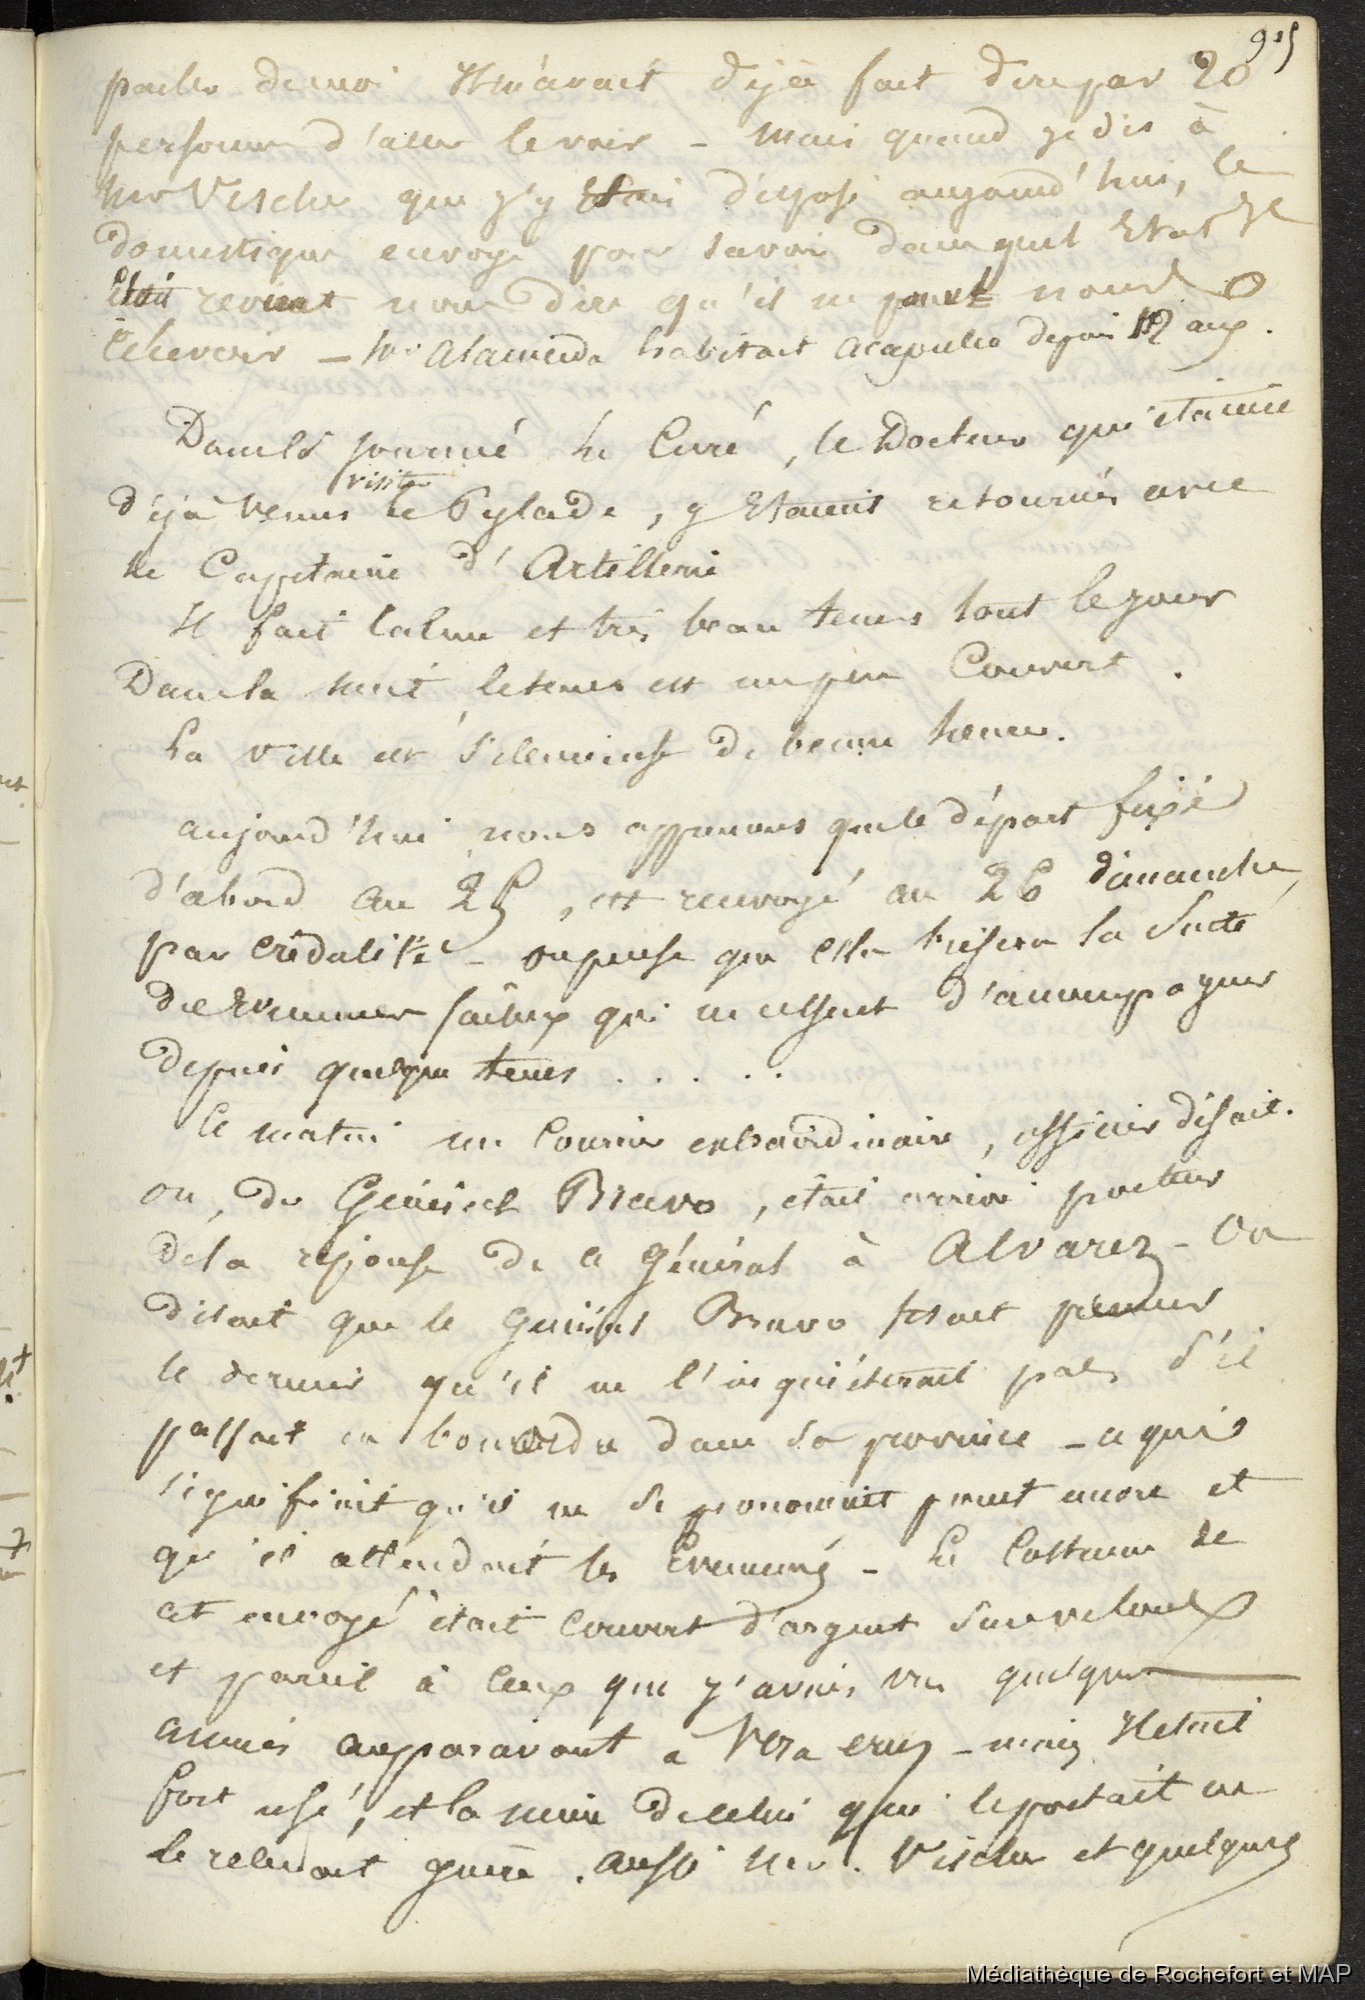 915
parler de moi Il m'avait déjà fait dire par 20
personnes d'aller le voir - mais quand je dis à
Mr Vischer que j'y étais disposé aujourd'hui, le
domestique envoyé pour savoir dans quel Etat Il
était revint nous dire qu'il ne pouvait nous
recevoir - Mr Alameda habitait Acapulco depuis 12 ans.
Dans la journée le Curé, le Docteur qui étaient
visiter
déjà venus le Pylade, y Etaient retournés avec
le Capitaine d'Artillerie
Il fait Calme et très beau tems tout le jour
Dans la nuit le tems est un peu Couvert.
La ville est silencieuse de bonne heure.
aujourd'hui nous apprenons que le départ fixé
d'abord au 25, est renvoyé au 26 dimanche,
par crédulité - on pense que cela brisera la suite
d'Evénemens fâcheux qui ne cessent d'accompagner
depuis quelque tems . . . . .
Ce matin un Courrier extraordinaire, officier disait-
on, du Général Bravo, était arrivé porteur
de la réponse de ce Général à Alvarez - On
disait que le Général Bravo fesait
le dernier qu'il ne l'inquiéterait pas, s'il
passait en dans sa province - ce qui
signifiait qu'il ne se prononcait point encore et
qu'il attendait les Evénemens - Le Costume de
cet envoyé était couvert d'argent sur velours
et pareil à ceux que j'avais vus quelques
années auparavant à Vera cruz - mais Il était
fort usé, et la mine de celui qui le portait ne
le relevait guère. aussi Mr. Vischer et quelques
Médiathèque de Rochefort et MAP